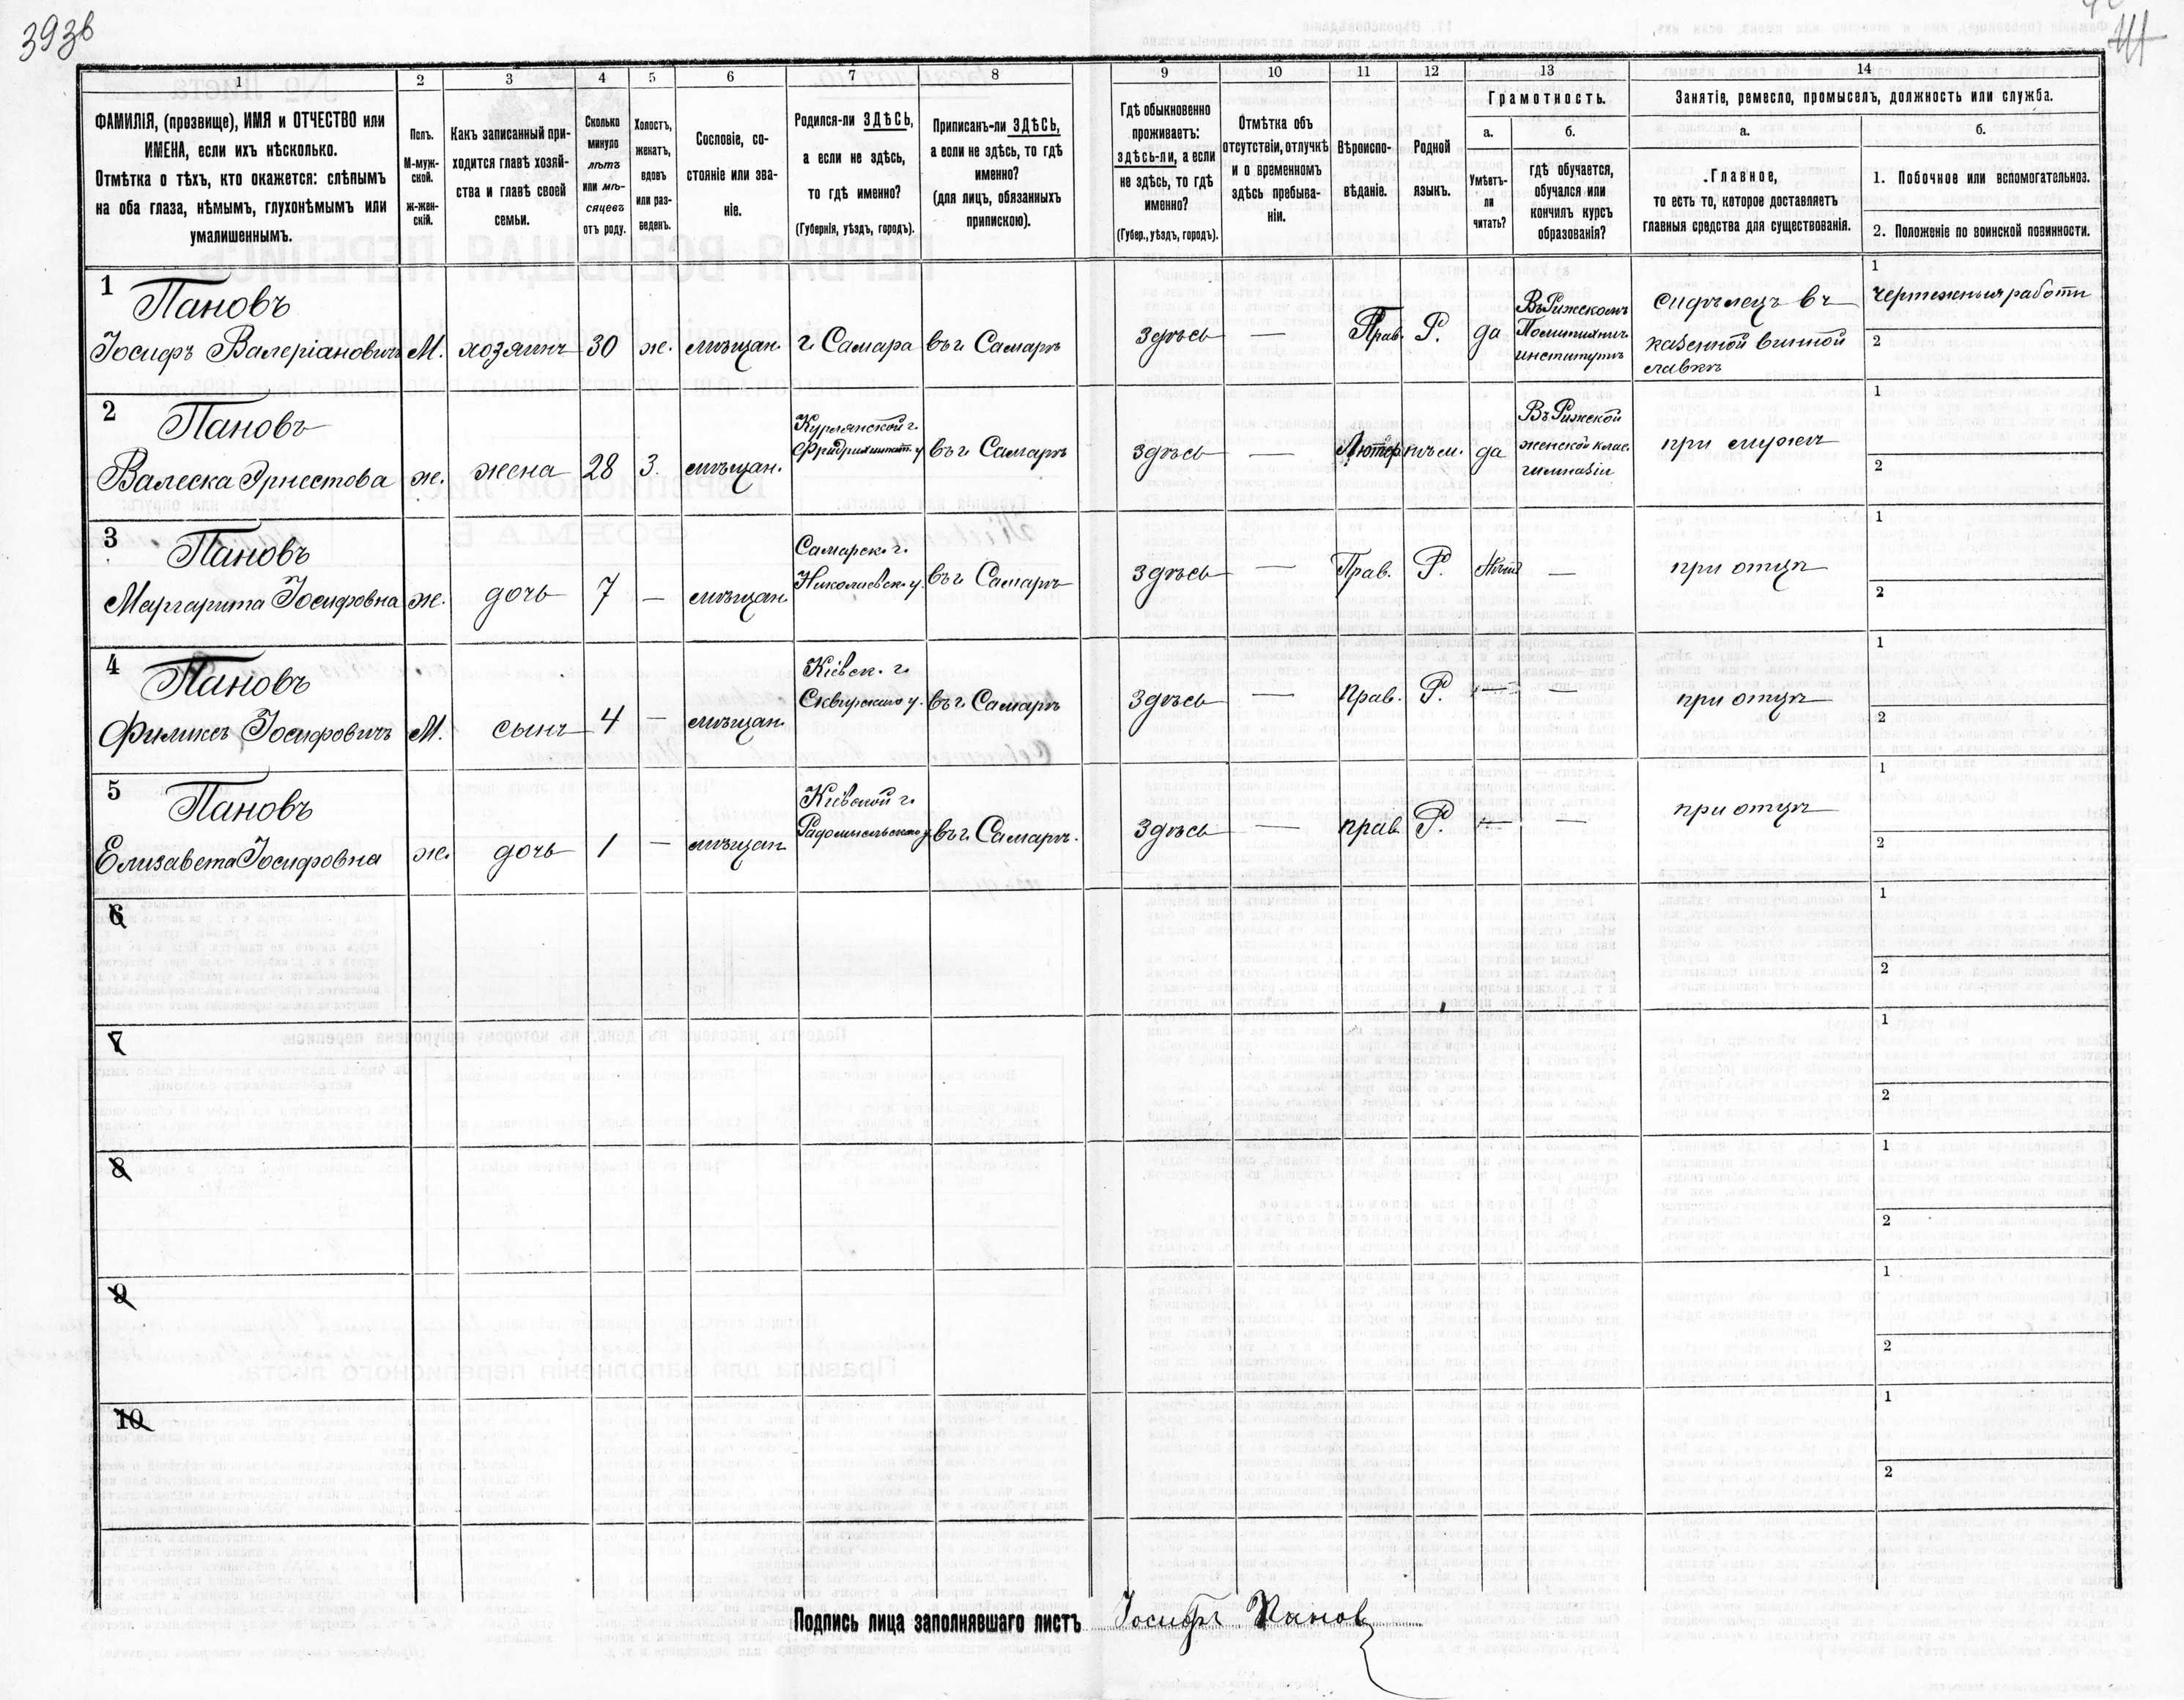 393в
41
1 2 3 4 5 6 7 8 9 10 11 12 13 14
ФАМИЛІЯ, (прозвище), ИМЯ и ОТЧЕСТВО или
ИМЕНА, если ихъ нѣсколько.
Отмѣтка о тѣхъ, кто окажется: слѣпымъ
на оба глаза, нѣмымъ, глухонѣмымъ или
умалишеннымъ.
Полъ.
М-муж-
ской.
ж-жен-
скій.
Какъ записанный при-
ходится главѣ хозяй-
ства и главѣ своей
семьи.
Сколько
минуло
лѣтъ
или мѣ-
сяцевъ
отъ роду.
Холостъ,
женатъ,
вдовъ
или раз-
веденъ.
Сословіе, со-
стояніе или зва-
ніе.
Родился-ли ЗДѢСЬ,
а если не здѣсь,
то гдѣ именно?
(Губернія, уѣздъ, городъ).
Приписанъ-ли ЗДѢСЬ,
а если не здѣсь, то гдѣ
именно?
(для лицъ, обязанныхъ
припискою).
Гдѣ обыкновенно
проживаетъ:
здѣсь-ли, а если
не здѣсь, то гдѣ
именно?
(Губер., уѣздъ, городъ).
Отмѣтка объ
отсутствіи, отлучкѣ
и о временномъ
здѣсь пребыва-
ніи.
Вѣроиспо-
вѣданіе.
Родной
языкъ.
Грамотность.
а.
Умѣетъ-
ли
читать?
б.
гдѣ обучается,
обучался или
кончилъ курсъ
образованія?
Занятіе, ремесло, промыселъ, должность или служба.
а.
Главное,
то есть то, которое доставляетъ
главныя средства для существованія.
б.
1. Побочное или вспомогательное.
2. Положеніе по воинской повинности.
1 Пановъ
Іосифъ Валеріановичъ М. хозяинъ 30 ж. мѣщан. г. Самара въ г. Самарѣ здѣсь — Прав. Р. да
Въ Рижскомъ
Политихнич.
институтѣ
сидѣлецъ въ
казенной винной
лавкѣ
1 чертежныя работы
2
2 Пановъ
Валеска Эрнестова ж. жена 28 З. мѣщан.
Курлянской г.
Фридрихштат. у.
въ г. Самарѣ здѣсь — Лютер. нѣм. да
Въ Рижской
женской клас.
гимназіи
при мужѣ
1
2
3 Пановъ
Маргарита Іосифовна ж. дочь 7 — мѣщан.
Самарск. г.
Николаевск. у.
въ г. Самарѣ здѣсь — Прав. Р. нѣтъ —
при отцѣ
1
2
4 Пановъ
Филиксъ Іосифовичъ М. сынъ 4 — мѣщан.
Кіевск. г.
Сквирскаго у.
въ г. Самарѣ здѣсь — прав. Р. — —
при отцѣ
1
2
5 Пановъ
Елизавета Іосифовна ж. дочь 1 — мѣщан.
Кіевской г.
Радомысльскаго у.
въ г. Самарѣ. здѣсь — прав. Р. — —
при отцѣ
1
2
6
1
2
7
1
2
8
1
2
9
1
2
10
1
2
Подпись лица заполнявшаго листъ Іосифъ Пановъ